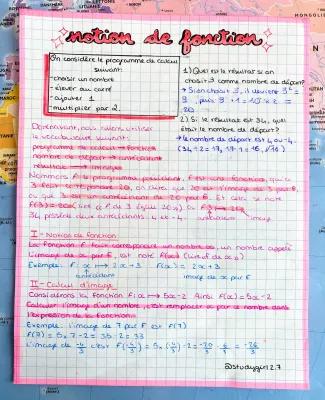 notion de fonction
On considère le programme de calcul
suivant:
-choisir un nombre
-élever au carré
-ajouter 1
-multiplier par 2.
1) Quel est le résultat si on
choisit 3 comme nombre de départ?
→ Si on choisit 3, il devient 3² =
9, puis 9 + 1 = 10 x 2 =
20
2) Si le résultat est 34, quel
était le nombre de départ?
→ le nombre de départ est 4 ou -4
(34÷2=17, 17-1=16, √16)
Dorénavant, nous allons utiliser
le vocabulaire suivant:
programme de calcul → fonction
nombre de départ → antécédent
résultat → image
Nommons f le programme précédent, f est une fonction, que
3 fait correspondre 20, on dira que 20 est l'image de 3 par f,
ou que 3 est un antécédent de 20 par f. Et cela se note
f(3) = 20 (lire f de 3 égale 20) ou f: 3 → 20
34 possède deux antécédents 4 et -4
antécédent
image
I - Notion de fonction
La fonction f fait correspondre un nombre x, un nombre appelé
l'image de x par f, est noté f(x) (lire f de x)
Exemple: f: x → 2x+3 f(x) = 2x+3
antécédent
image de x par f
II - Calcul d'image
Considérons la fonction f: x → 5x-2 Ainsi f(x) = 5x-2
Calculer l'image d'un nombre, c'est remplacer x par ce nombre dans
l'expression de la fonction.
Exemple: l'image de 7 par f est f(7)
f(7) = 5x7-2 = 35-2 = 33
L'image de -4/3 c'est f(-4/3) = 5x(-4/3)-2 = -20/3 - 6/3 = -26/3
@studygirl2.7